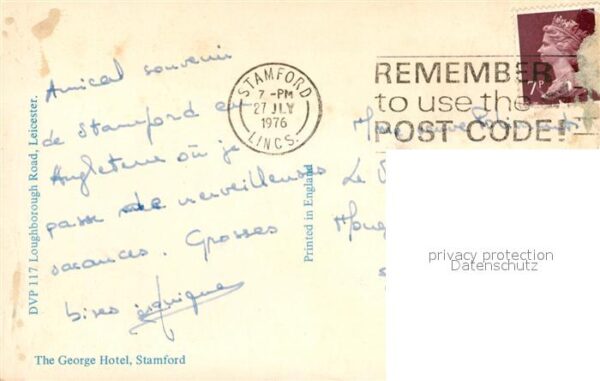 Amical souvenir
de Stamford en
Angleterre où je
passe de merveilleuses
vacances. Grosses
bises
DVP 117 Loughborough Road, Leicester.
Printed in England
The George Hotel, Stamford
STAMFORD
7 - PM
27 JLY
1976
LINCS.
REMEMBER
to use the
POST CODE!
7P
Le
privacy protection
Datenschutz